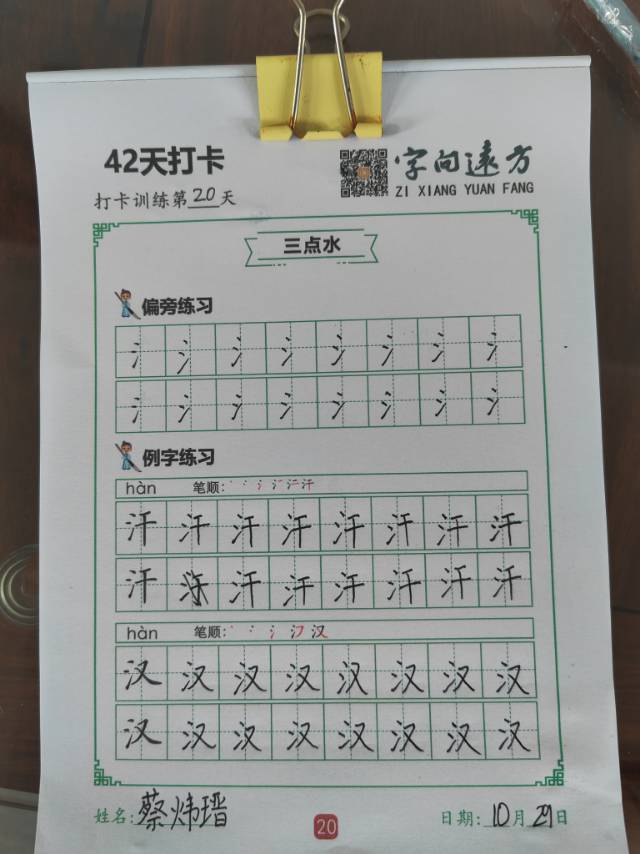 42天打卡
字向遠方
ZI XIANG YUAN FANG
打卡训练第20天
三点水
偏旁练习
氵氵氵氵氵氵氵氵
氵氵氵氵氵氵氵氵
例字练习
hàn 笔顺:
汗汗汗汗汗汗汗汗
汗 汗汗汗汗汗汗
hàn 笔顺:
汉汉汉汉汉汉汉汉
汉汉汉汉汉汉汉汉
姓名:蔡炜瑨
20
日期:10月29日